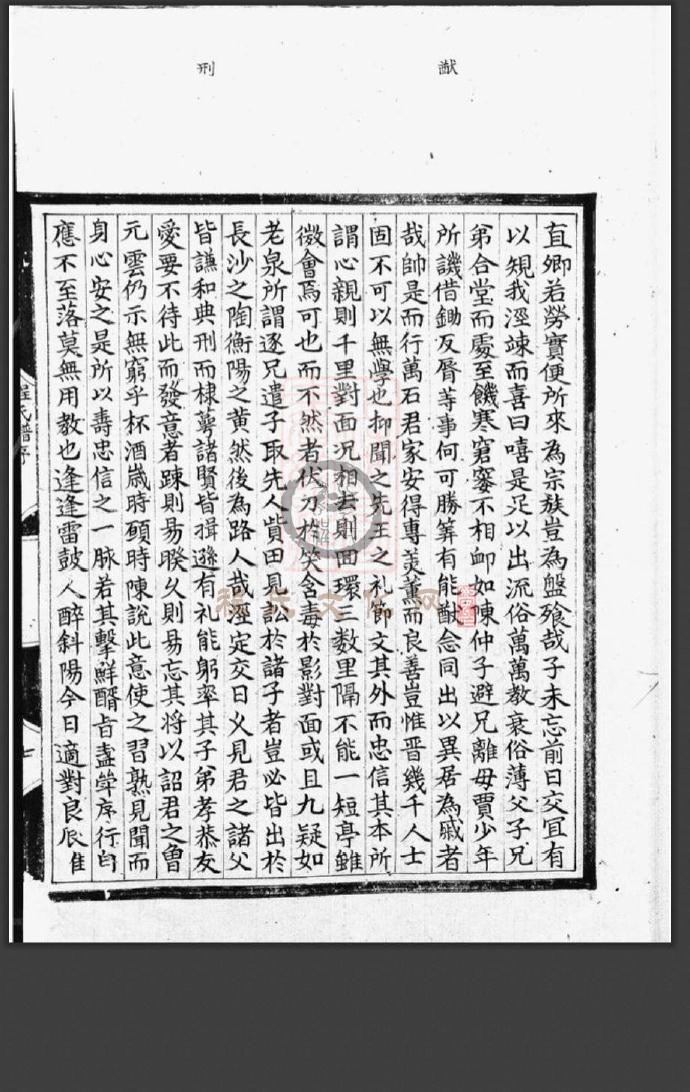 猷
刑
直卿若勞實便所來為宗族豈為盤飱哉子未忘前日交宜有
以規我溼竦而喜曰嘻是足以出流俗萬萬教衰俗薄父子兄
弟合堂而處至饑寒窮窶不相卹如陳仲子避兄離母賈少年
所譏借鋤反脣等事何可勝筭有能猷念同出以異居為戚者
哉帥是而行萬石君家安得專美薰而良善豈惟晋幾千人士
固不可以無學也抑聞之先王之礼節文其外而忠信其本所
謂心親則千里對面况相去則回環三数里隔不能一短亭雖
微會焉可也而不然者伏刀於笑含毒於影對面或且九疑如
老泉所謂逐兄遣子取先人貲田見訟於諸子者豈必皆出於
長沙之陶衡陽之黄然後為路人哉溼定交日乂見君之諸父
皆謙和典刑而棣萼諸賢皆揖遜有礼能躬率其子弟孝恭友
愛要不待此而發意者踈則易暌久則易忘其將以詔君之曾
元雲仍示無窮乎杯酒嵗時頋時陳說此意使之習熟見聞而
身心安之是所以壽忠信之一脉若其擊鮮醑旨盍斚序行自
應不至落莫無用教也逢逢雷鼓人醉斜陽今日適對良辰隹
程氏譜序
七
程氏文化网